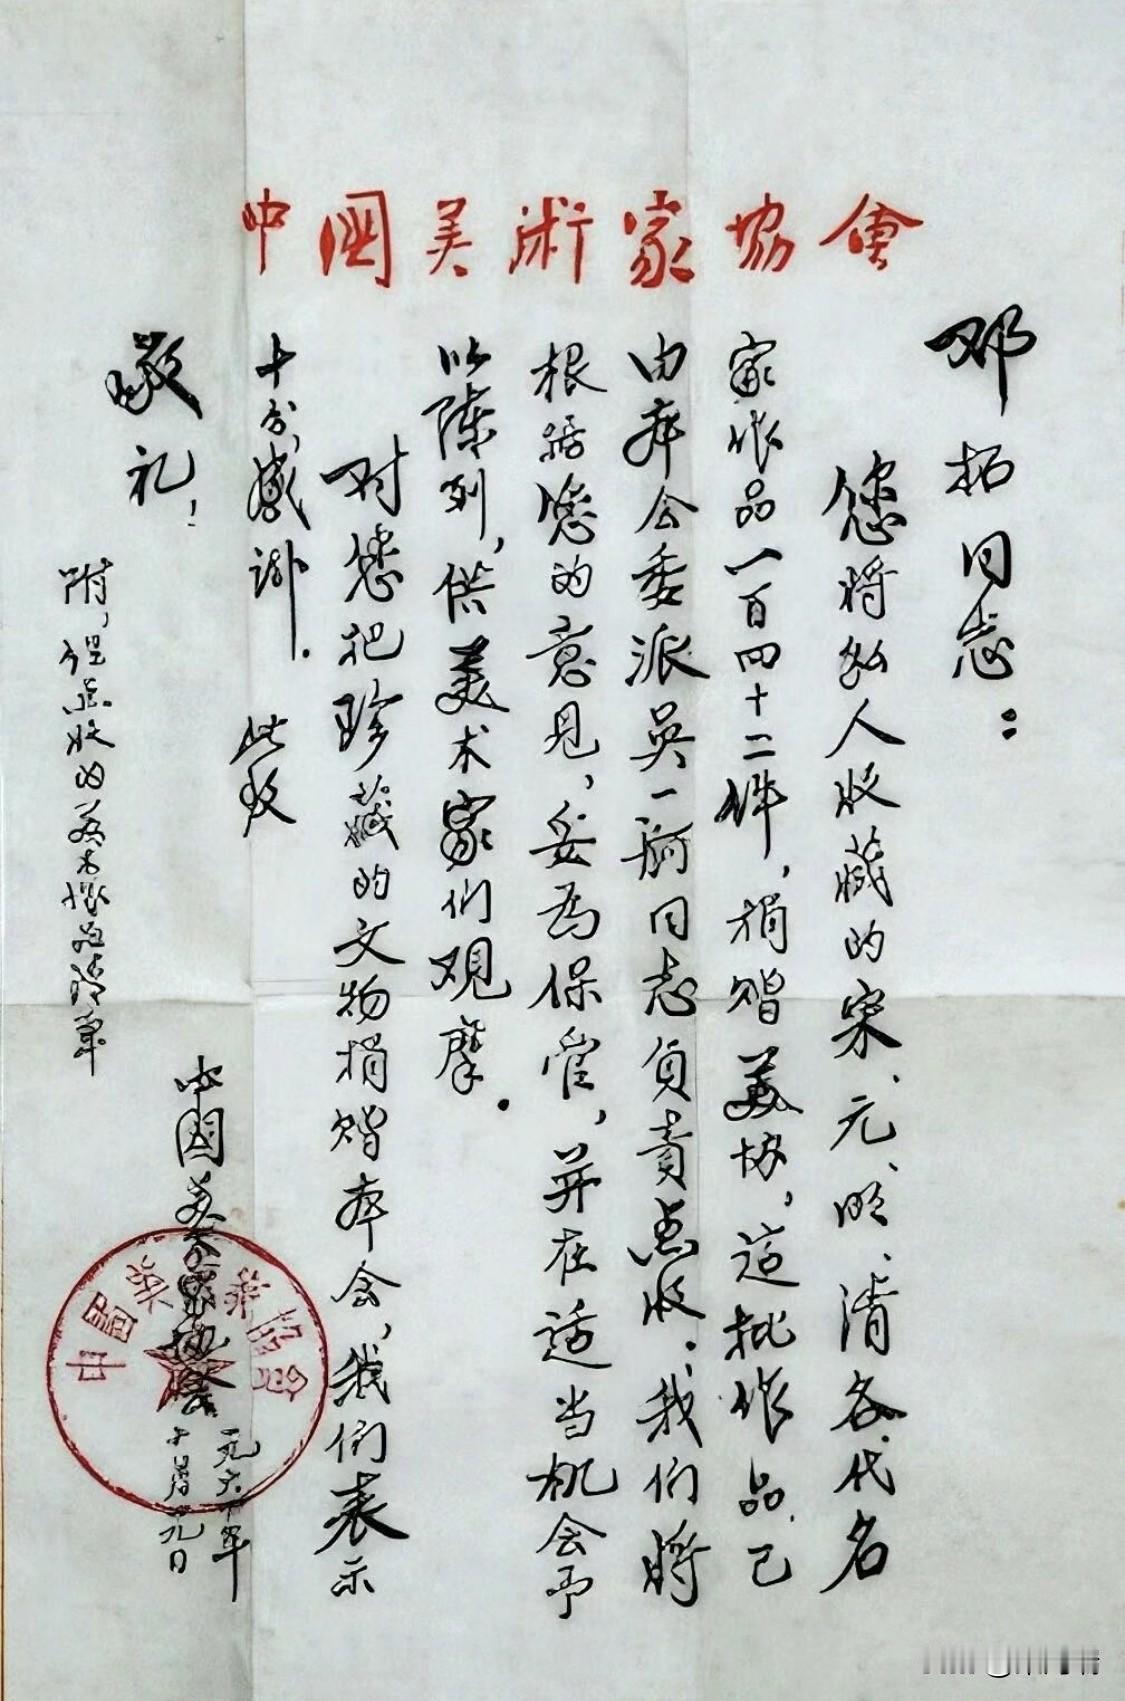 中國美術家協會
邓拓同志：
您将私人收藏的宋、元、明、清各代名
家作品一百四十二件，捐赠美协，这批作品已
由本会委派吴一舸同志负责点收。我们将
根据您的意见，妥为保管，并在适当机会予
以陈列，供美术家们观摩。
对您把珍藏的文物捐赠本会，我们表示
十分感谢。 此致
敬礼！
附，经点收的美术作品清单
中国美术家协会
一九六 年
十 月 九日
中國美術家協會